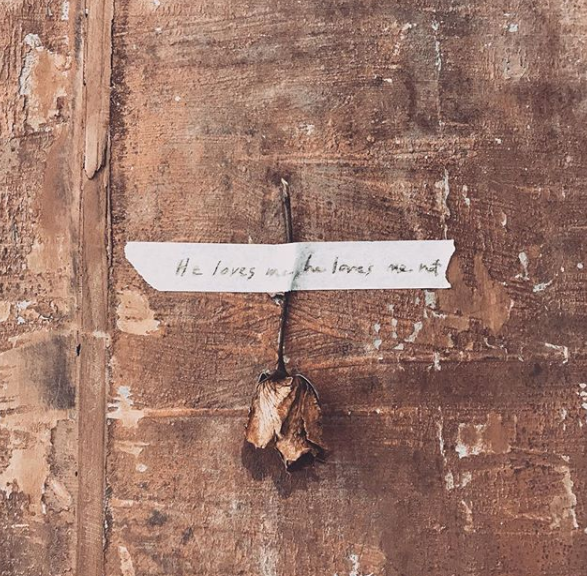 He loves me he loves me not